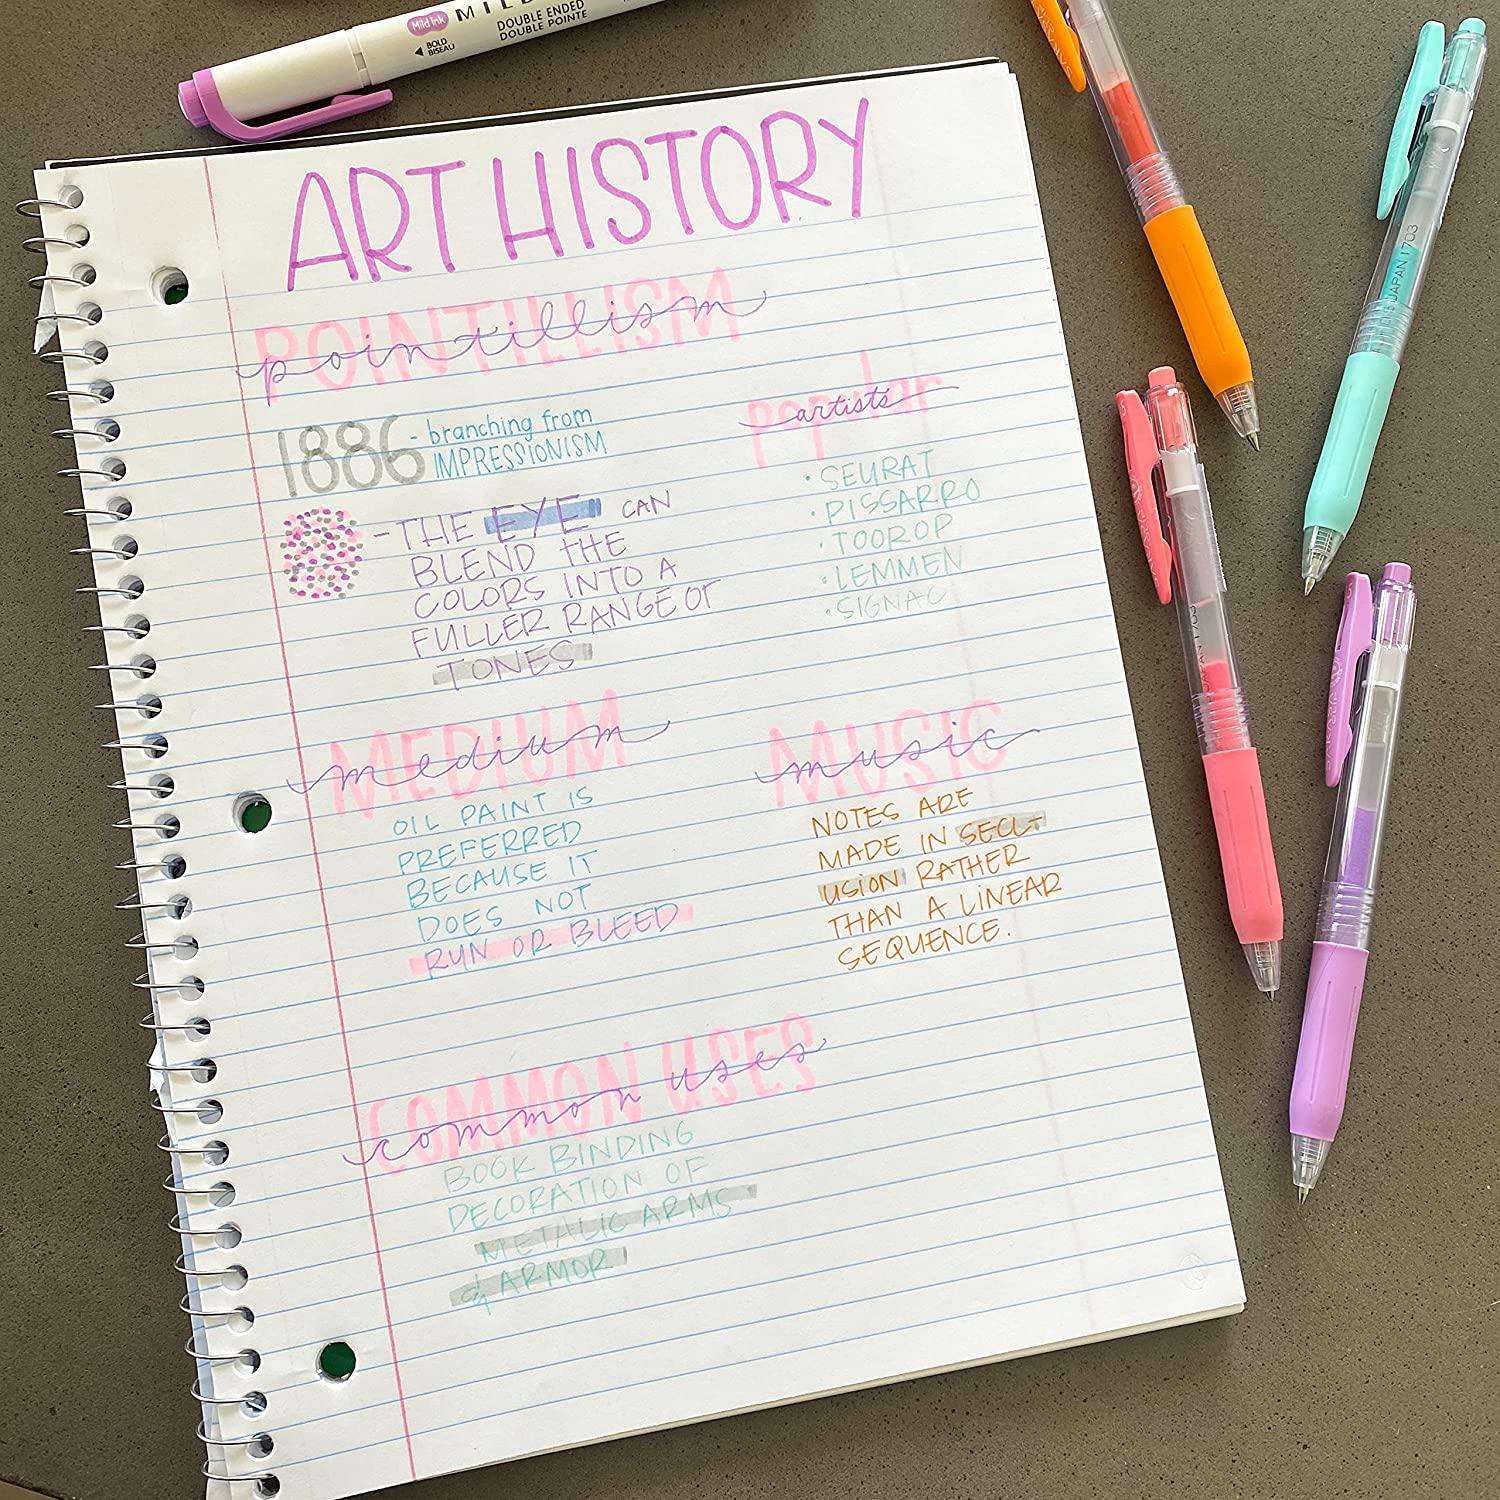 Mild Ink
MILD
DOUBLE ENDED
DOUBLE POINTE
◄ BOLD
BISEAU
ART HISTORY
POINTILLISM
pointillism
1886 - branching from
IMPRESSIONISM
- THE EYE CAN
BLEND THE
COLORS INTO A
FULLER RANGE OF
TONES
popular
artists
· SEURAT
· PISSARRO
· TOOROP
· LEMMEN
· SIGNAC
MEDIUM
medium
OIL PAINT IS
PREFERRED
BECAUSE IT
DOES NOT
RUN OR BLEED
MUSIC
music
NOTES ARE
MADE IN SECL-
USION RATHER
THAN A LINEAR
SEQUENCE.
COMMON USES
common uses
BOOK BINDING
DECORATION OF
METALIC ARMS
& ARMOR
JAPAN 1703